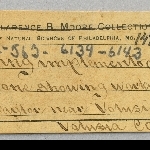 CLARENCE B. MOORE COLLECTION
OF NATURAL SCIENCES OF PHILADELPHIA, NO.
-563- 6134-6143
implements
showing work
near Volusia
Volusia Co